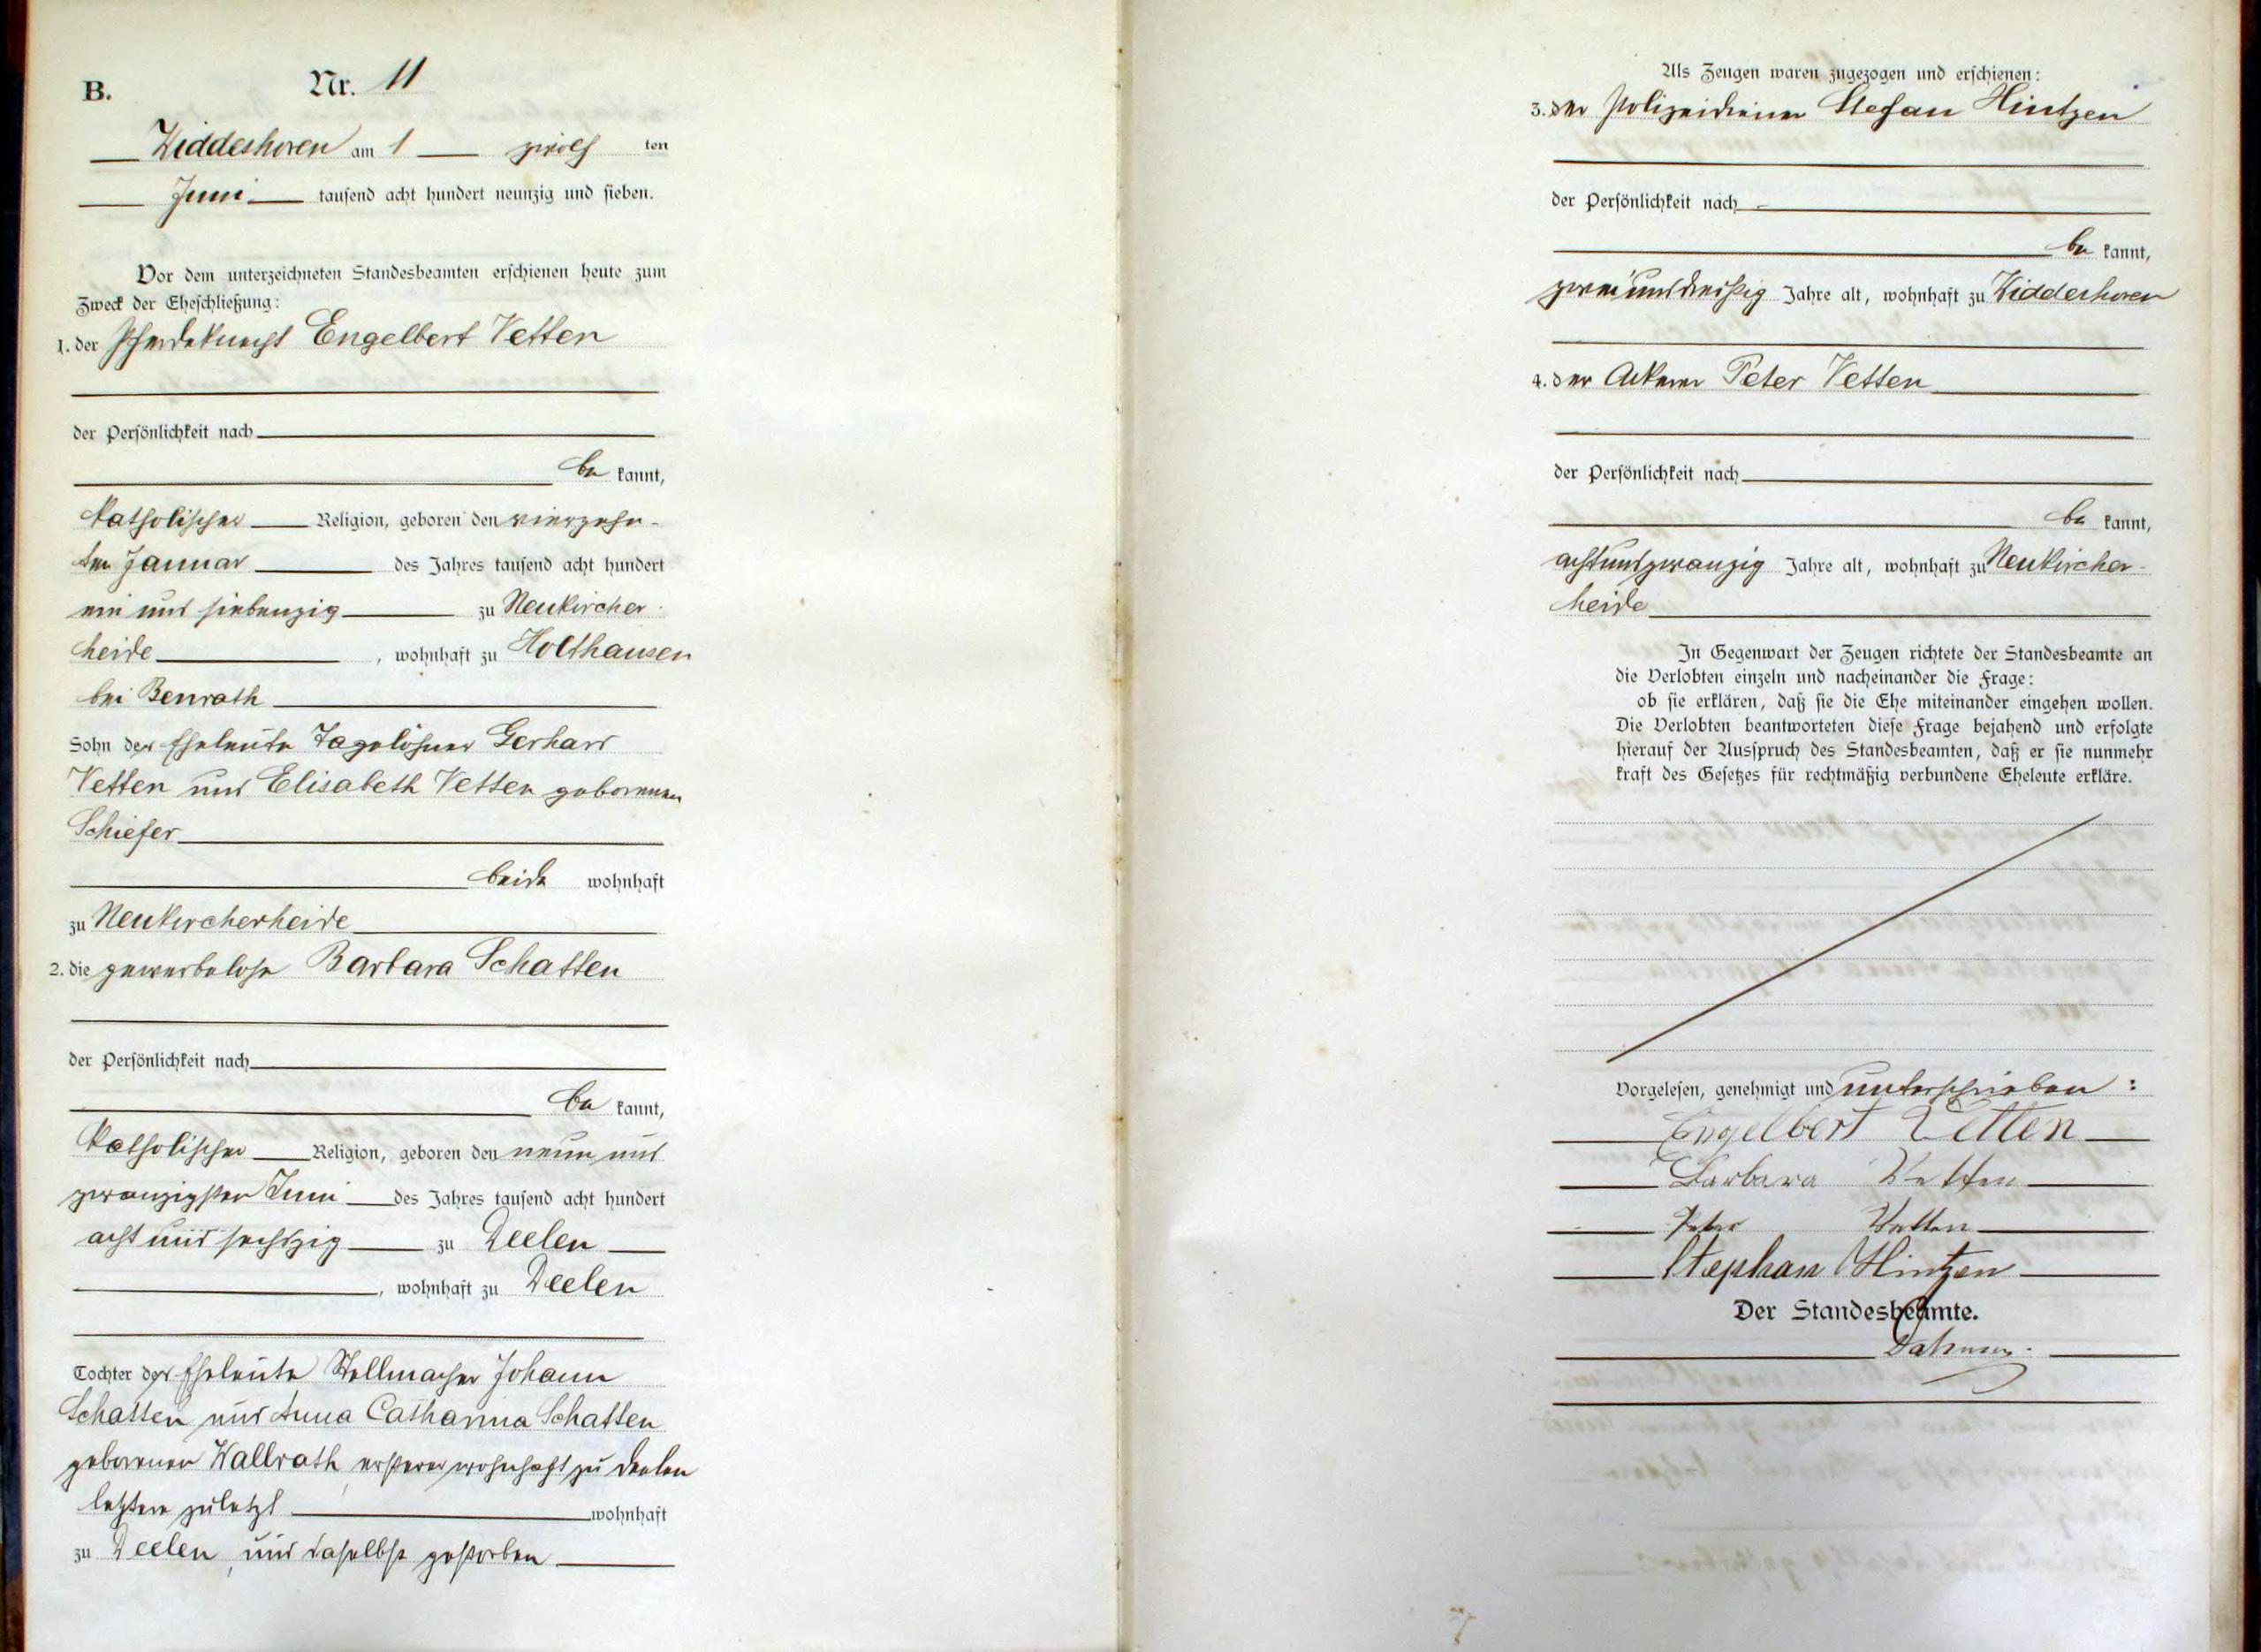 B. Nr. 11
Widdeshoven am 1 zwölf ten
Juni tausend acht hundert neunzig und sieben.
Vor dem unterzeichneten Standesbeamten erschienen heute zum
Zweck der Eheschließung:
1. der Pferdeknecht Engelbert Vetten
der Persönlichkeit nach
be kannt,
katholischer Religion, geboren den vierzehn-
ten Januar des Jahres tausend acht hundert
ein und siebenzig zu Neukircher-
heide, wohnhaft zu Holthausen
bei Benrath
Sohn der Eheleute Tagelöhner Gerhard
Vetten und Elisabeth Vetten geborenen
Schiefer
beide wohnhaft
zu Neukircherheide
2. die gewerbelose Barbara Schatten
der Persönlichkeit nach
be kannt,
katholischer Religion, geboren den neun und
zwanzigsten Juni des Jahres tausend acht hundert
acht und sechszig zu Deelen
, wohnhaft zu Deelen
Tochter der Eheleute Stellmacher Johann
Schatten und Anna Catharina Schatten
geborenen Wallrath, ersterer wohnhaft zu Deelen
letztere zuletzt wohnhaft
zu Deelen, und daselbst gestorben
Als Zeugen waren zugezogen und erschienen:
3. der Polizeidiener Stefan Hintzen
der Persönlichkeit nach
be kannt,
zweiunddreißig Jahre alt, wohnhaft zu Widdeshoven
4. der Ackerer Peter Vetten
der Persönlichkeit nach
be kannt,
achtundzwanzig Jahre alt, wohnhaft zu Neukircher-
heide
In Gegenwart der Zeugen richtete der Standesbeamte an
die Verlobten einzeln und nacheinander die Frage:
ob sie erklären, daß sie die Ehe miteinander eingehen wollen.
Die Verlobten beantworteten diese Frage bejahend und erfolgte
hierauf der Ausspruch des Standesbeamten, daß er sie nunmehr
kraft des Gesetzes für rechtmäßig verbundene Eheleute erkläre.
Vorgelesen, genehmigt und unterschrieben:
Engelbert Vetten
Barbara Vetten
Peter Vetten
Stephan Hintzen
Der Standesbeamte.